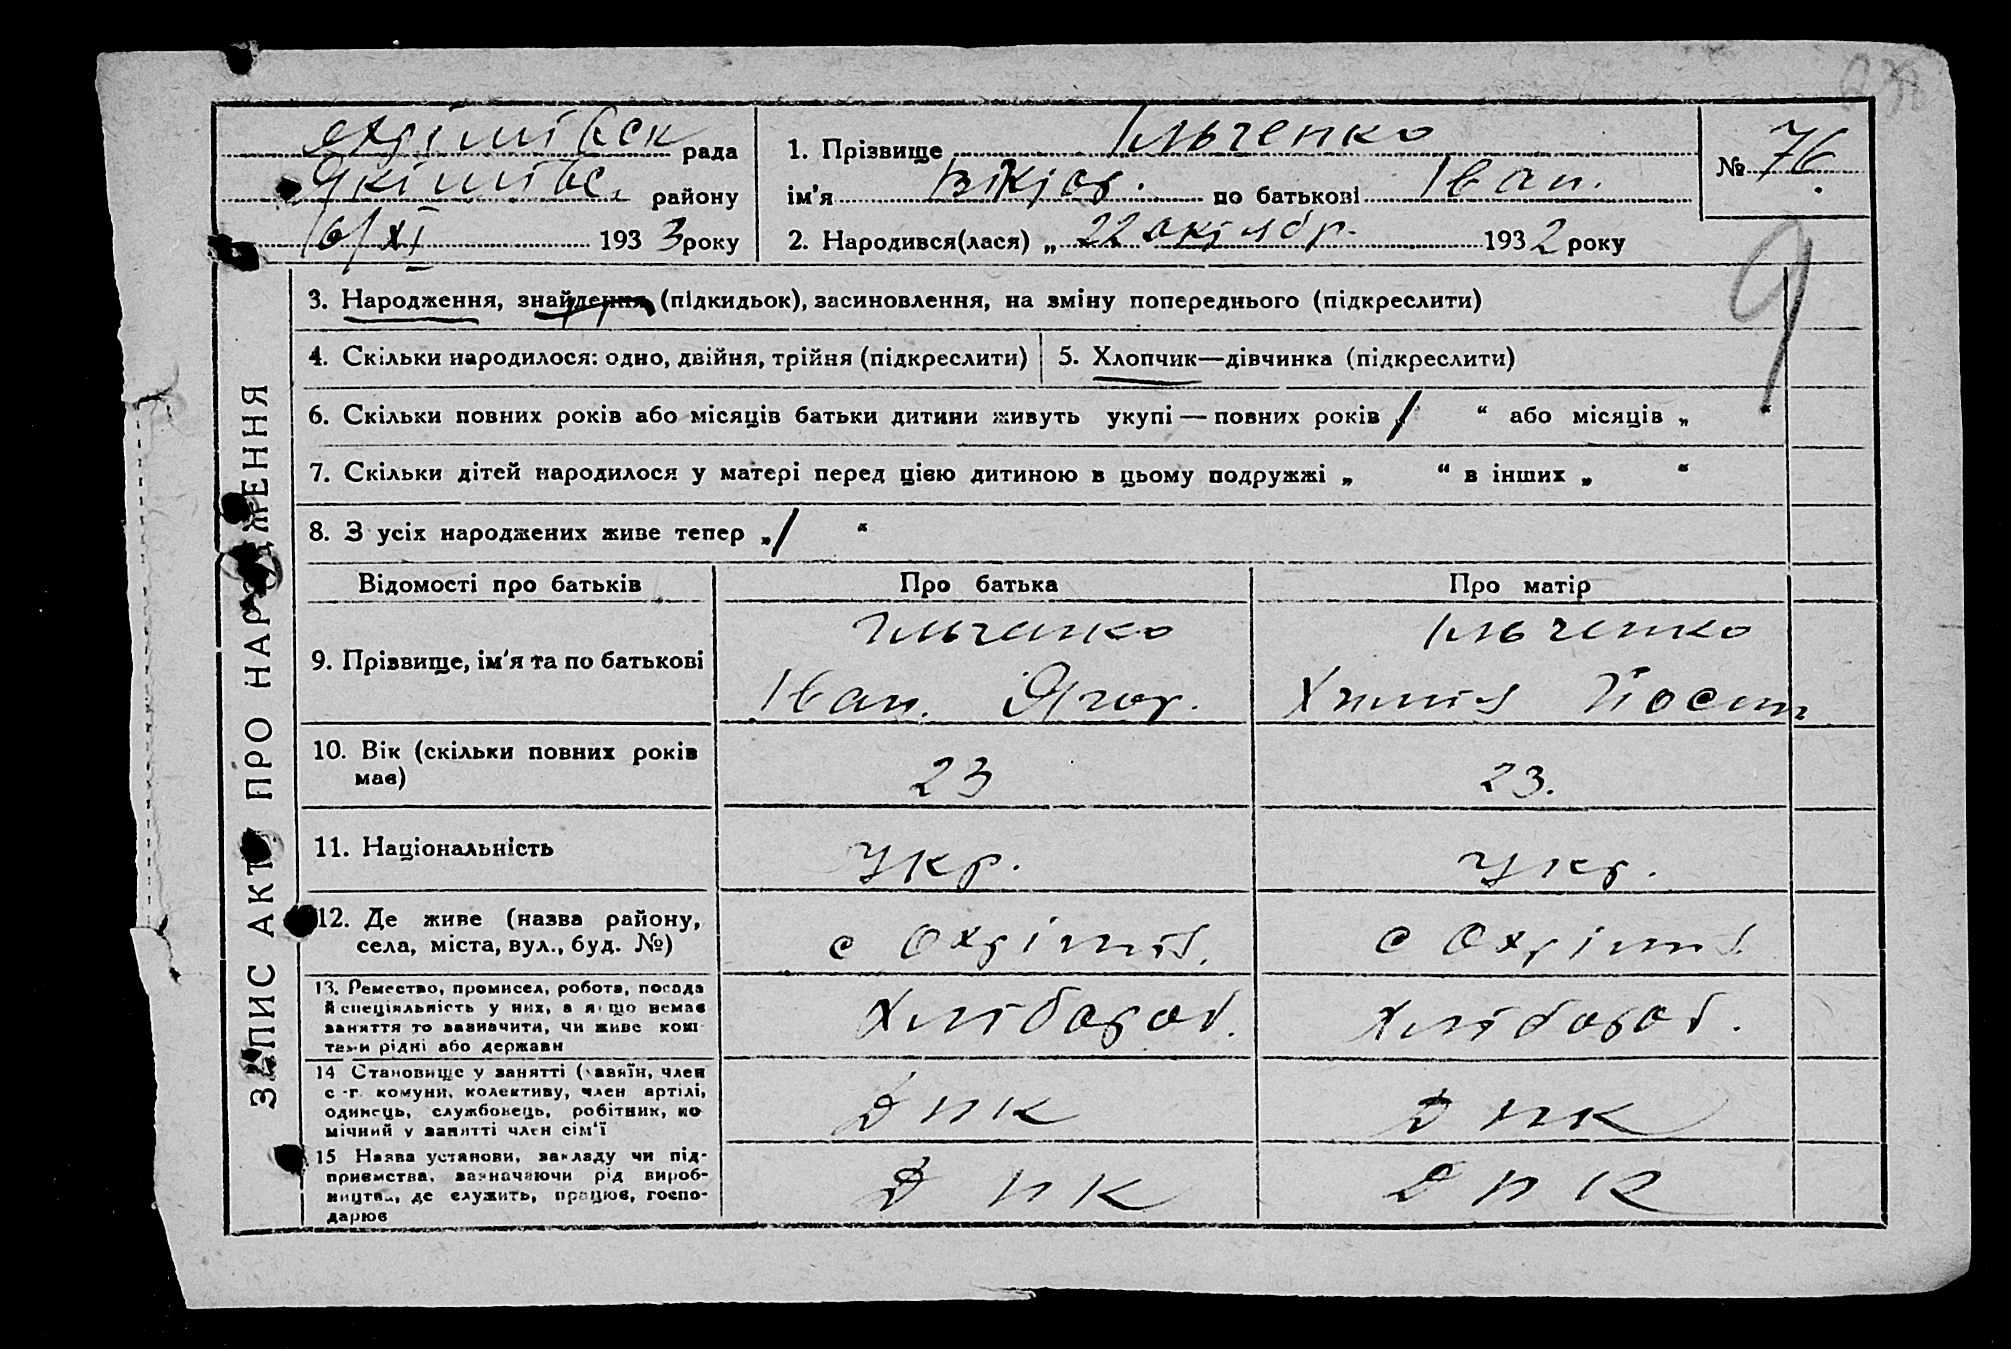 Охрімівськ рада
Якімівс. району
6/XI 1933 року
1. Прізвище Ільченко
ім'я Віктор. по батькові Іван.
2. Народився(лася) „ 22 октябр. 1932 року
№ 76.
9
ЗАПИС АКТУ ПРО НАРОДЖЕННЯ
3. Народження, знайдення, (підкидьок), засиновлення, на зміну попереднього (підкреслити)
4. Скільки народилося: одно, двійня, трійня (підкреслити)
5. Хлопчик—дівчинка (підкреслити)
6. Скільки повних років або місяців батьки дитини живуть укупі — повних років „ / “ або місяців „ “
7. Скільки дітей народилося у матері перед цією дитиною в цьому подружжі „ “ в інших „ “
8. З усіх народжених живе тепер „ / “
Відомості про батьків Про батька Про матір
Ільченко Ільченко
9. Прізвище, ім'я та по батькові
Іван. Ягор. Йосип
10. Вік (скільки повних років
має) 23 23.
11. Національність укр. укр.
12. Де живе (назва району,
села, міста, вул., буд. №) с Охрімів. с Охрімів
13. Ремество, промисел, робота, посада
й спеціяльність у них, а якщо немає
заняття то зазначити, чи живе кош-
тами рідні або держави
Хлібороб. Хлібороб.
14 Становище у занятті (хазяїн, член
с.-г. комуни, колективу, член артілі,
одинець, службовець, робітник, по-
мічний у занятті член сім'ї
Д п к Д п к
15 Назва установи, закладу чи під-
приємства, зазначаючи рід вироб-
ництва, де служить, працює, госпо-
дарює
Д п к Д п к